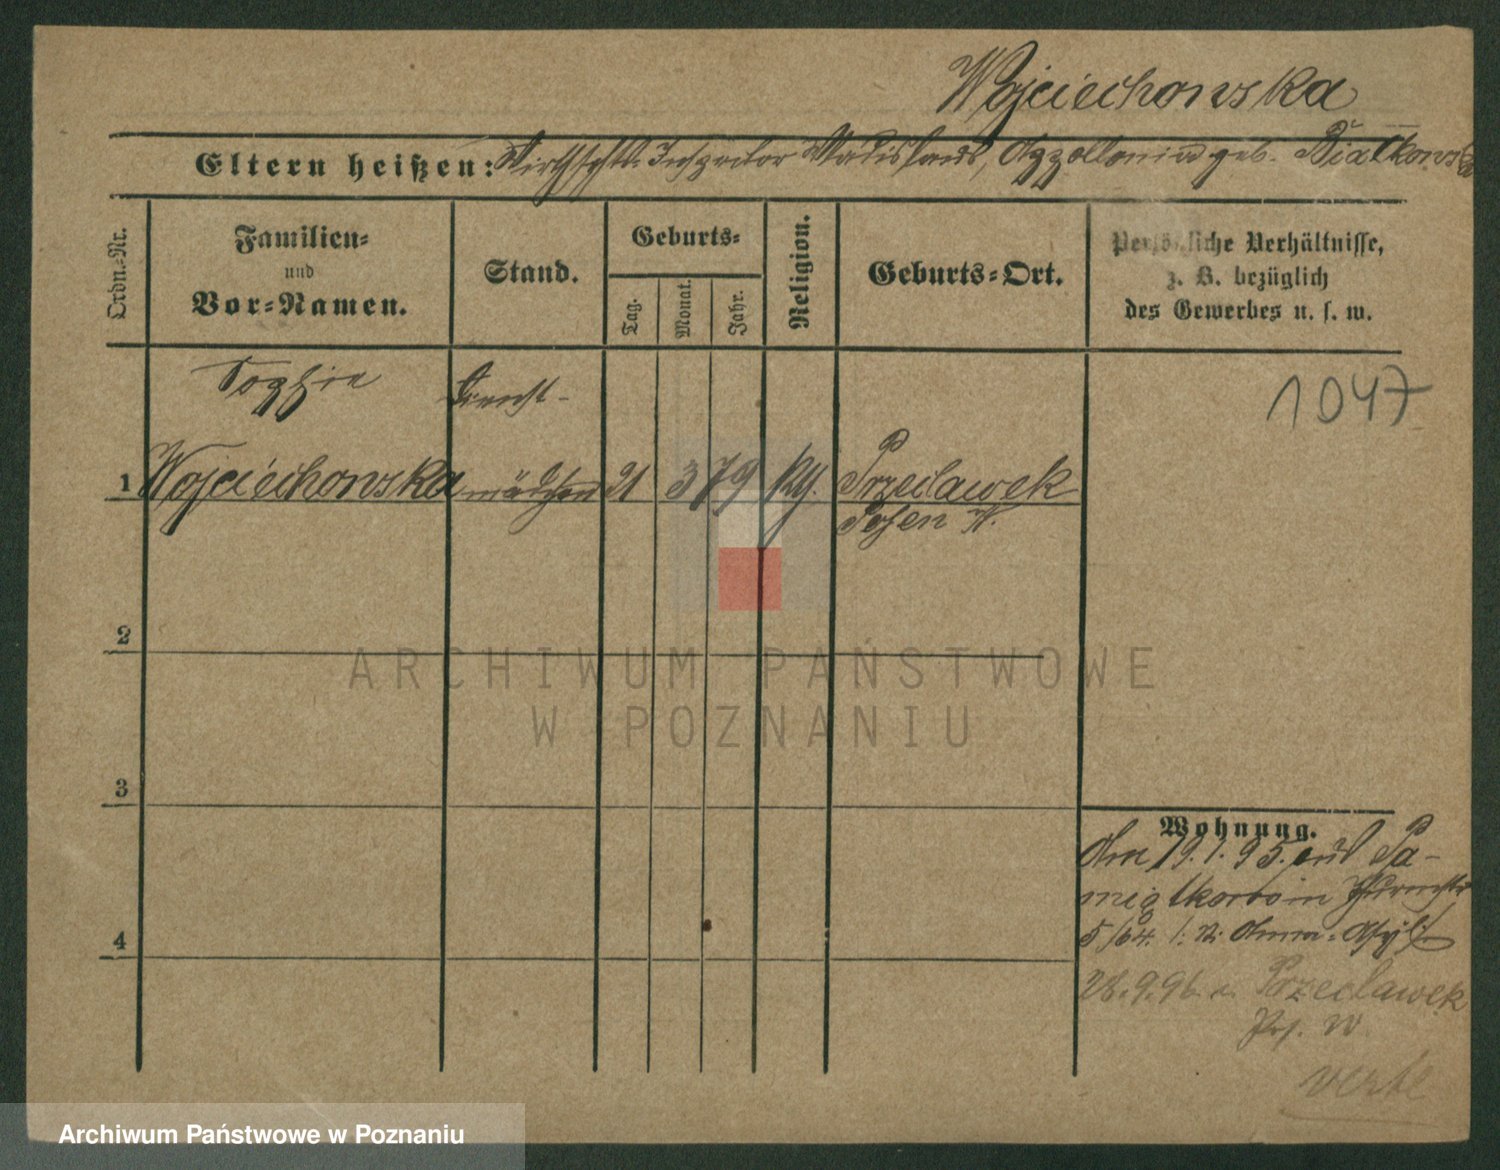 Wojciechowska
Eltern heißen: Wirthsch. Inspector Wladislaus, Appollonia geb. Białkowska
Ordn.-Nr.
Familien-
und
Vor-Namen.
Stand.
Geburts-
Tag.
Monat.
Jahr.
Religion.
Geburts-Ort.
Persönliche Verhältnisse,
z. B. bezüglich
des Gewerbes u. s. w.
1047
Sophie Dienst-
1 Wojciechowska mädchen 21 3 79 Przecławek
Posen W.
2
3
4
Wohnung.
Am 19.1.95. Pa-
miątkowo in
5/64. Anna-Asyl
28.9.96. n. Przecławek
Pos. W.
ARCHIWUM PAŃSTWOWE
W POZNANIU
Archiwum Państwowe w Poznaniu